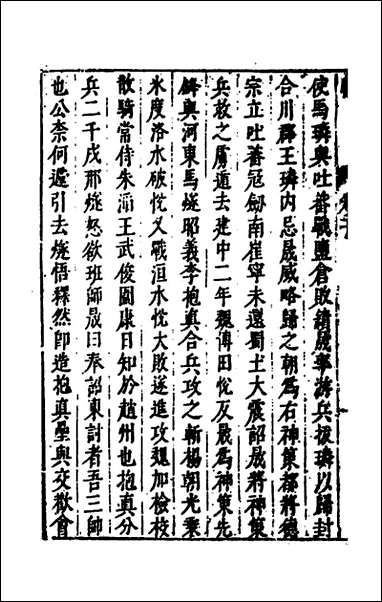 使馬璘與吐蕃戰鹽倉敗績晟率游兵拔璘以歸封
合川郡王璘内忌晟威略歸之朝爲右神策都將德
宗立吐蕃冦劒南崔寧未還蜀土大震詔晟將神策
兵救之虜遁去建中二年魏博田悅反晟爲神策先
鋒與河東馬燧昭義李抱眞合兵攻之斬楊朝光乗
氷度洺水破悅又戰洹水悅大敗遂進攻魏加檢校
散騎常侍朱滔王武俊圍康日知於趙州也抱眞分
兵二千戍邢燧怒欲班師晟曰奉詔東討者吾三帥
也公柰何遽引去燧悟釋然卽造抱眞壘與交歡會